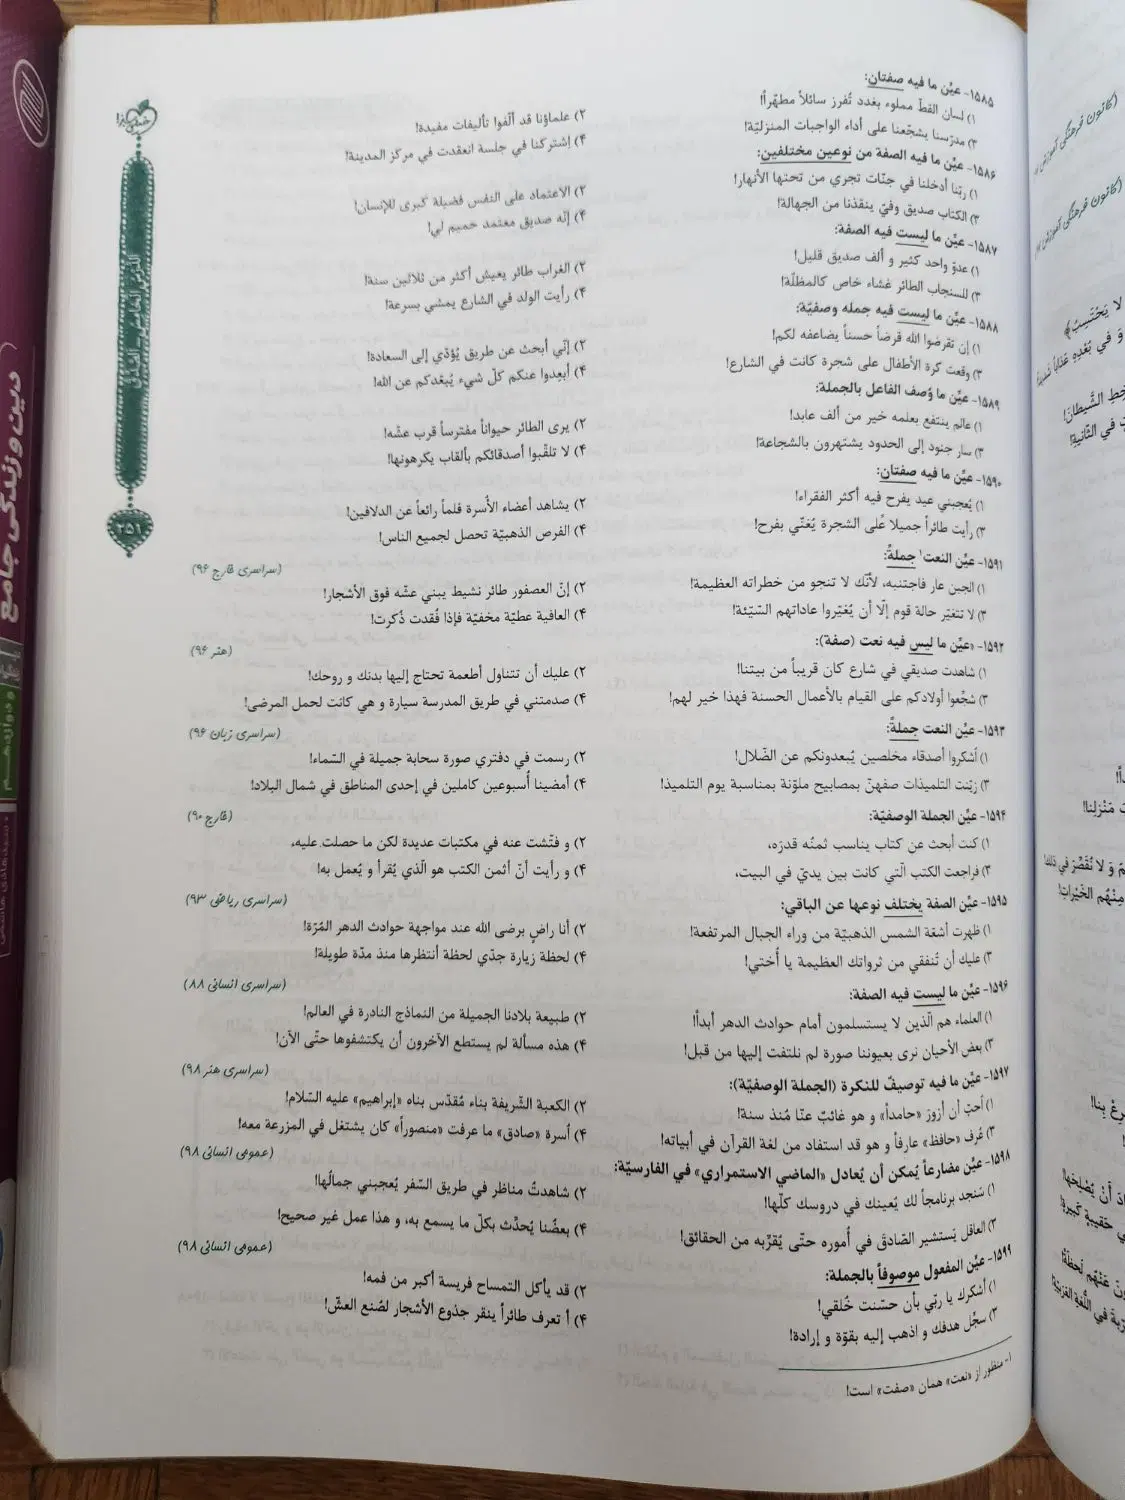 ۱۵۸۵- عیّن ما فیه صفتان:
۱) لسان القطّ مملوء بغدد تُفرز سائلاً مطهّراً!
۲) علماؤنا قد ألّفوا تألیفات مفیدة!
۳) مدرّسنا یشجّعنا علی أداء الواجبات المنزلیّة!
۴) إشترکنا في جلسة انعقدت في مرکز المدینة!
۱۵۸۶- عیّن ما فیه الصفة من نوعین مختلفین:
۱) ربّنا أدخلنا في جنّات تجري من تحتها الأنهار!
۲) الاعتماد علی النفس فضیلة کبری للإنسان!
۳) الکتاب صدیق وفيّ ینقذنا من الجهالة!
۴) إنّه صدیق معتمد حمیم لي!
۱۵۸۷- عیّن ما لیست فیه الصفة:
۱) عدوّ واحد کثیر و ألف صدیق قلیل!
۲) الغراب طائر یعیش أکثر من ثلاثین سنة!
۳) للسنجاب الطائر غشاء خاص کالمظلّة!
۴) رأیت الولد في الشارع یمشي بسرعة!
۱۵۸۸- عیّن ما لیست فیه جمله وصفیّة:
۱) إن تقرضوا الله قرضاً حسناً یضاعفه لکم!
۲) إنّي أبحث عن طریق یُؤدّي إلی السعادة!
۳) وقعت کرة الأطفال علی شجرة کانت في الشارع!
۴) أبعِدوا عنکم کلّ شيء یُبعّدکم عن الله!
۱۵۸۹- عیّن ما وُصف الفاعل بالجملة:
۱) عالم ینتفع بعلمه خیر من ألف عابد!
۲) یری الطائر حیواناً مفترساً قرب عشّه!
۳) سار جنود إلی الحدود یشتهرون بالشجاعة!
۴) لا تلقّبوا أصدقائکم بألقاب یکرهونها!
۱۵۹۰- عیّن ما فیه صفتان:
۱) یُعجبني عید یفرح فیه أکثر الفقراء!
۲) یشاهد أعضاء الأسرة فلماً رائعاً عن الدلافین!
۳) رأیت طائراً جمیلا عُلی الشجرة یُغنّي بفرح!
۴) الفرص الذهبیّة تحصل لجمیع الناس!
۱۵۹۱- عیّن النعت۱ جملةً:
(سراسری خارج ۹۶)
۱) الجبن عار فاجتنبه، لأنّک لا تنجو من خطراته العظیمة!
۲) إنّ العصفور طائر نشیط یبني عشّه فوق الأشجار!
۳) لا تتغیّر حالة قوم إلّا أن یُغیّروا عاداتهم السّیّئة!
۴) العافیة عطیّة مخفیّة فإذا فُقدت ذُکرت!
۱۵۹۲- «عیّن ما لیس فیه نعت (صفة):
(هنر ۹۶)
۱) شاهدت صدیقي في شارع کان قریباً من بیتنا!
۲) علیك أن تتناول أطعمة تحتاج إلیها بدنك و روحك!
۳) شجّعوا أولادکم علی القیام بالأعمال الحسنة فهذا خیر لهم!
۴) صدمتني في طریق المدرسة سیارة و هي کانت لحمل المرضی!
۱۵۹۳- عیّن النعت جملةً:
(سراسری زبان ۹۶)
۱) أشکروا أصدقاء مخلصین یُبعدونکم عن الضّلال!
۲) رسمت في دفتري صورة سحابة جمیلة في السّماء!
۳) زیّنت التلمیذات صفهنّ بمصابیح ملوّنة بمناسبة یوم التلمیذ!
۴) أمضینا أُسبوعین کاملین في إحدی المناطق في شمال البلاد!
۱۵۹۴- عیّن الجملة الوصفیّة:
(خارج ۹۰)
۱) کنت أبحث عن کتاب یناسب ثمنُه قدرَه،
۲) و فتّشت عنه في مکتبات عدیدة لکن ما حصلت علیه،
۳) فراجعت الکتب الّتي کانت بین یديّ في البیت،
۴) و رأیت أنّ أثمن الکتب هو الّذي یُقرأ و یُعمل به!
۱۵۹۵- عیّن الصفة یختلف نوعها عن الباقي:
(سراسری ریاضی ۹۳)
۱) ظهرت أشعّة الشمس الذهبیّة من وراء الجبال المرتفعة!
۲) أنا راضٍ برضی الله عند مواجهة حوادث الدهر المُرّة!
۳) علیك أن تُنفقي من ثرواتك العظیمة یا أُختي!
۴) لحظة زیارة جدّي لحظة أنتظرها منذ مدّة طویلة!
۱۵۹۶- عیّن ما لیست فیه الصفة:
(سراسری انسانی ۸۸)
۱) العلماء هم الّذین لا یستسلمون أمام حوادث الدهر أبداً!
۲) طبیعة بلادنا الجمیلة من النماذج النادرة في العالم!
۳) بعض الأحیان نری بعیوننا صورة لم نلتفت إلیها من قبل!
۴) هذه مسألة لم یستطع الآخرون أن یکتشفوها حتّی الآن!
۱۵۹۷- عیّن ما فیه توصیفٌ للنکرة (الجملة الوصفیّة):
(سراسری هنر ۹۸)
۱) أحبّ أن أزورَ «حامداً» و هو غائبٌ عنّا مُنذ سنة!
۲) الکعبة الشّریفة بناء مُقدّس بناه «إبراهیم» علیه السّلام!
۳) عُرف «حافظ» عارفاً و هو قد استفاد من لغة القرآن في أبیاته!
۴) أسرة «صادق» ما عرفت «منصوراً» کان یشتغل في المزرعة معه!
۱۵۹۸- عیّن مضارعاً یُمکن أن یُعادل «الماضي الاستمراري» في الفارسیّة:
(عمومی انسانی ۹۸)
۱) سَنجد برنامجاً لك یُعینك في دروسك کلّها!
۲) شاهدتُ مناظر في طریق السّفر یُعجبني جمالُها!
۳) العاقل یَستشیر الصّادقَ في أُموره حتّی یُقرّبه من الحقائق!
۴) بعضُنا یُحدِّث بکلّ ما یسمع به، و هذا عمل غیر صحیح!
۱۵۹۹- عیّن المفعول موصوفاً بالجملة:
(عمومی انسانی ۹۸)
۱) أشکرك یا ربّي بأن حسّنت خُلقي!
۲) قد یأکل التمساح فریسة أکبر من فمه!
۳) سجِّل هدفك و اذهب إلیه بقوّة و إرادة!
۴) أ تعرف طائراً ینقر جذوع الأشجار لصُنع العشّ!
۱- منظور از «نعت» همان «صفت» است!
۲۵۱
دین و زندگی جامع
دوازدهم